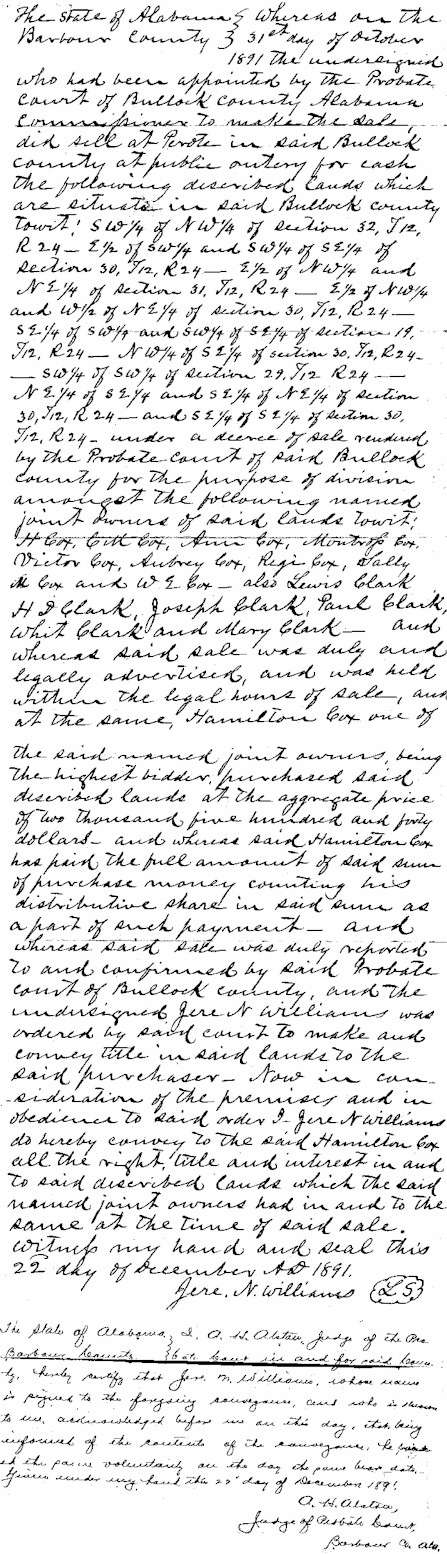 The State of Alabama } Whereas on the
Barbour County } 31st day of October
1891 the undersigned
who had been appointed by the Probate
Court of Bullock county Alabama
Commissioner to make the sale,
did sell at Perote in said Bullock
county at public outcry for cash
the following described lands which
are situate in said Bullock county
towit: SW1/4 of NW1/4 of section 32, T12,
R24 — E1/2 of SW1/4 and SW1/4 of SE1/4 of
section 30, T12, R24 — E1/2 of NW1/4 and
NE1/4 of section 31, T12, R24 — E1/2 of NW1/4
and W1/2 of NE1/4 of section 30, T12, R24 —
SE1/4 of SW1/4 and SW1/4 of SE1/4 of section 19,
T12, R24 — NW1/4 of SE1/4 of section 30, T12, R24 -
— SW1/4 of SW1/4 of section 29, T12 R24 —
NE1/4 of SE1/4 and SE1/4 of NE1/4 of section
30, T12, R24 — and SE1/4 of SE1/4 of section 30,
T12, R24 - under a decree of sale rendered
by the Probate court of said Bullock
county for the purpose of division
amongst the following named
joint owners of said lands towit:
H Cox, C M Cox, Ann Cox, Montrop Cox,
Victor Cox, Aubrey Cox, Regi Cox, Sally
M Cox and W E Cox — also Lewis Clark
H D Clark, Joseph Clark, Paul Clark,
Whit Clark and Mary Clark — and
whereas said sale was duly and
legally advertised, and was held
within the legal hours of sale, and
at the same, Hamilton Cox one of
the said named joint owners, being
the highest bidder, purchased said
described lands at the aggregate price
of two thousand five hundred and forty
dollars — and whereas said Hamilton Cox
has paid the full amount of said sum
of purchase money counting his
distributive share in said sum as
a part of such payment — and
whereas said sale was duly reported
to and confirmed by said Probate
court of Bullock county, and the
undersigned Jere N Williams was
ordered by said court to make and
convey title in said lands to the
said purchaser — Now in con-
-sideration of the premises and in
obedience to said order I - Jere N Williams
do hereby convey to the said Hamilton Cox
all the right, title and interest in and
to said discribed lands which the said
named joint owners had in and to the
same at the time of said sale.
Witness my hand and seal this
22 day of December AD 1891.
Jere. N. Williams (LS)
The State of Alabama, } I, A. H. Alston, Judge of the Pro
Barbour County } bate Court in and for said Coun
ty, hereby certify that Jere. N. Williams, whose name
is signed to the foregoing conveyance, and who is known
to me, acknowledged before me on this day, that, being
informed of the contents of the conveyance, he
ed the same voluntarily on the day the same bears date.
Given under my hand this 22d day of December 1891.
A. H. Alston,
Judge of Probate Court,
Barbour Co. Ala.